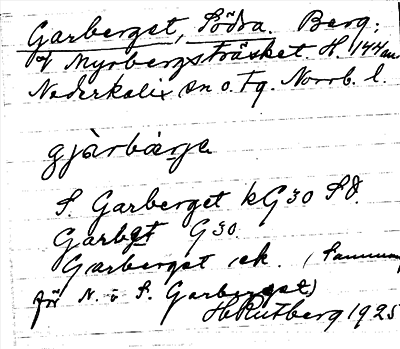 Garberget, Södra. Berg;
Myrbergsträsket. H. 144 m.
Nederkalix sn o. tg. Norrb. l.
gjàrbàrje
S. Garberget kG30 SO.
Garbgt G30
Garberget ek. (Samman
för N. o S. Garberget)
H. Rutberg 1925